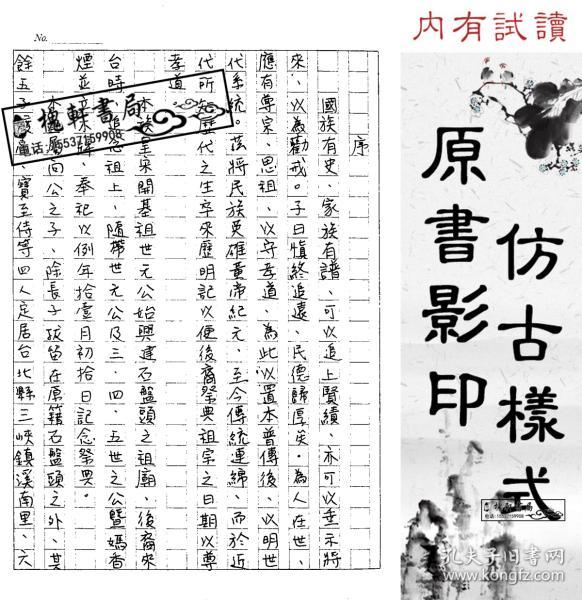 No.
序
國族有史、家族有譜、可以追上賢績、亦可以垂示將
來、以為勸戒。子曰慎終追遠、民德歸厚矣。為人在世、
應有尊宗、思祖、以守孝道、為此以置本普傳後、以明世
代系統。茲將民族英雄黃帝紀元、至今傳統連綿、而於近
代所 歷代之生卒來歷明記以便後裔祭典祖宗之日期以尊
孝道
本族 宋開基祖世元公始興建石盤頭之祖廟、後裔來
台時、追 祖上、隨帶世元公及三、四、五世之公暨媽香
煙並 牌、奉祀以例年拾壹月初拾日記念祭典。
向公之子、除長子 留在原籍石盤頭之外、其
餘五子 寶至侍等四人定居台北縣三峽鎮溪南里、六
槐軒書局
电话:15537159908
讀試有內
仿古樣式
原書影印
槐軒書局
电话:15537159908
孔夫子旧书网
www.kongfz.com